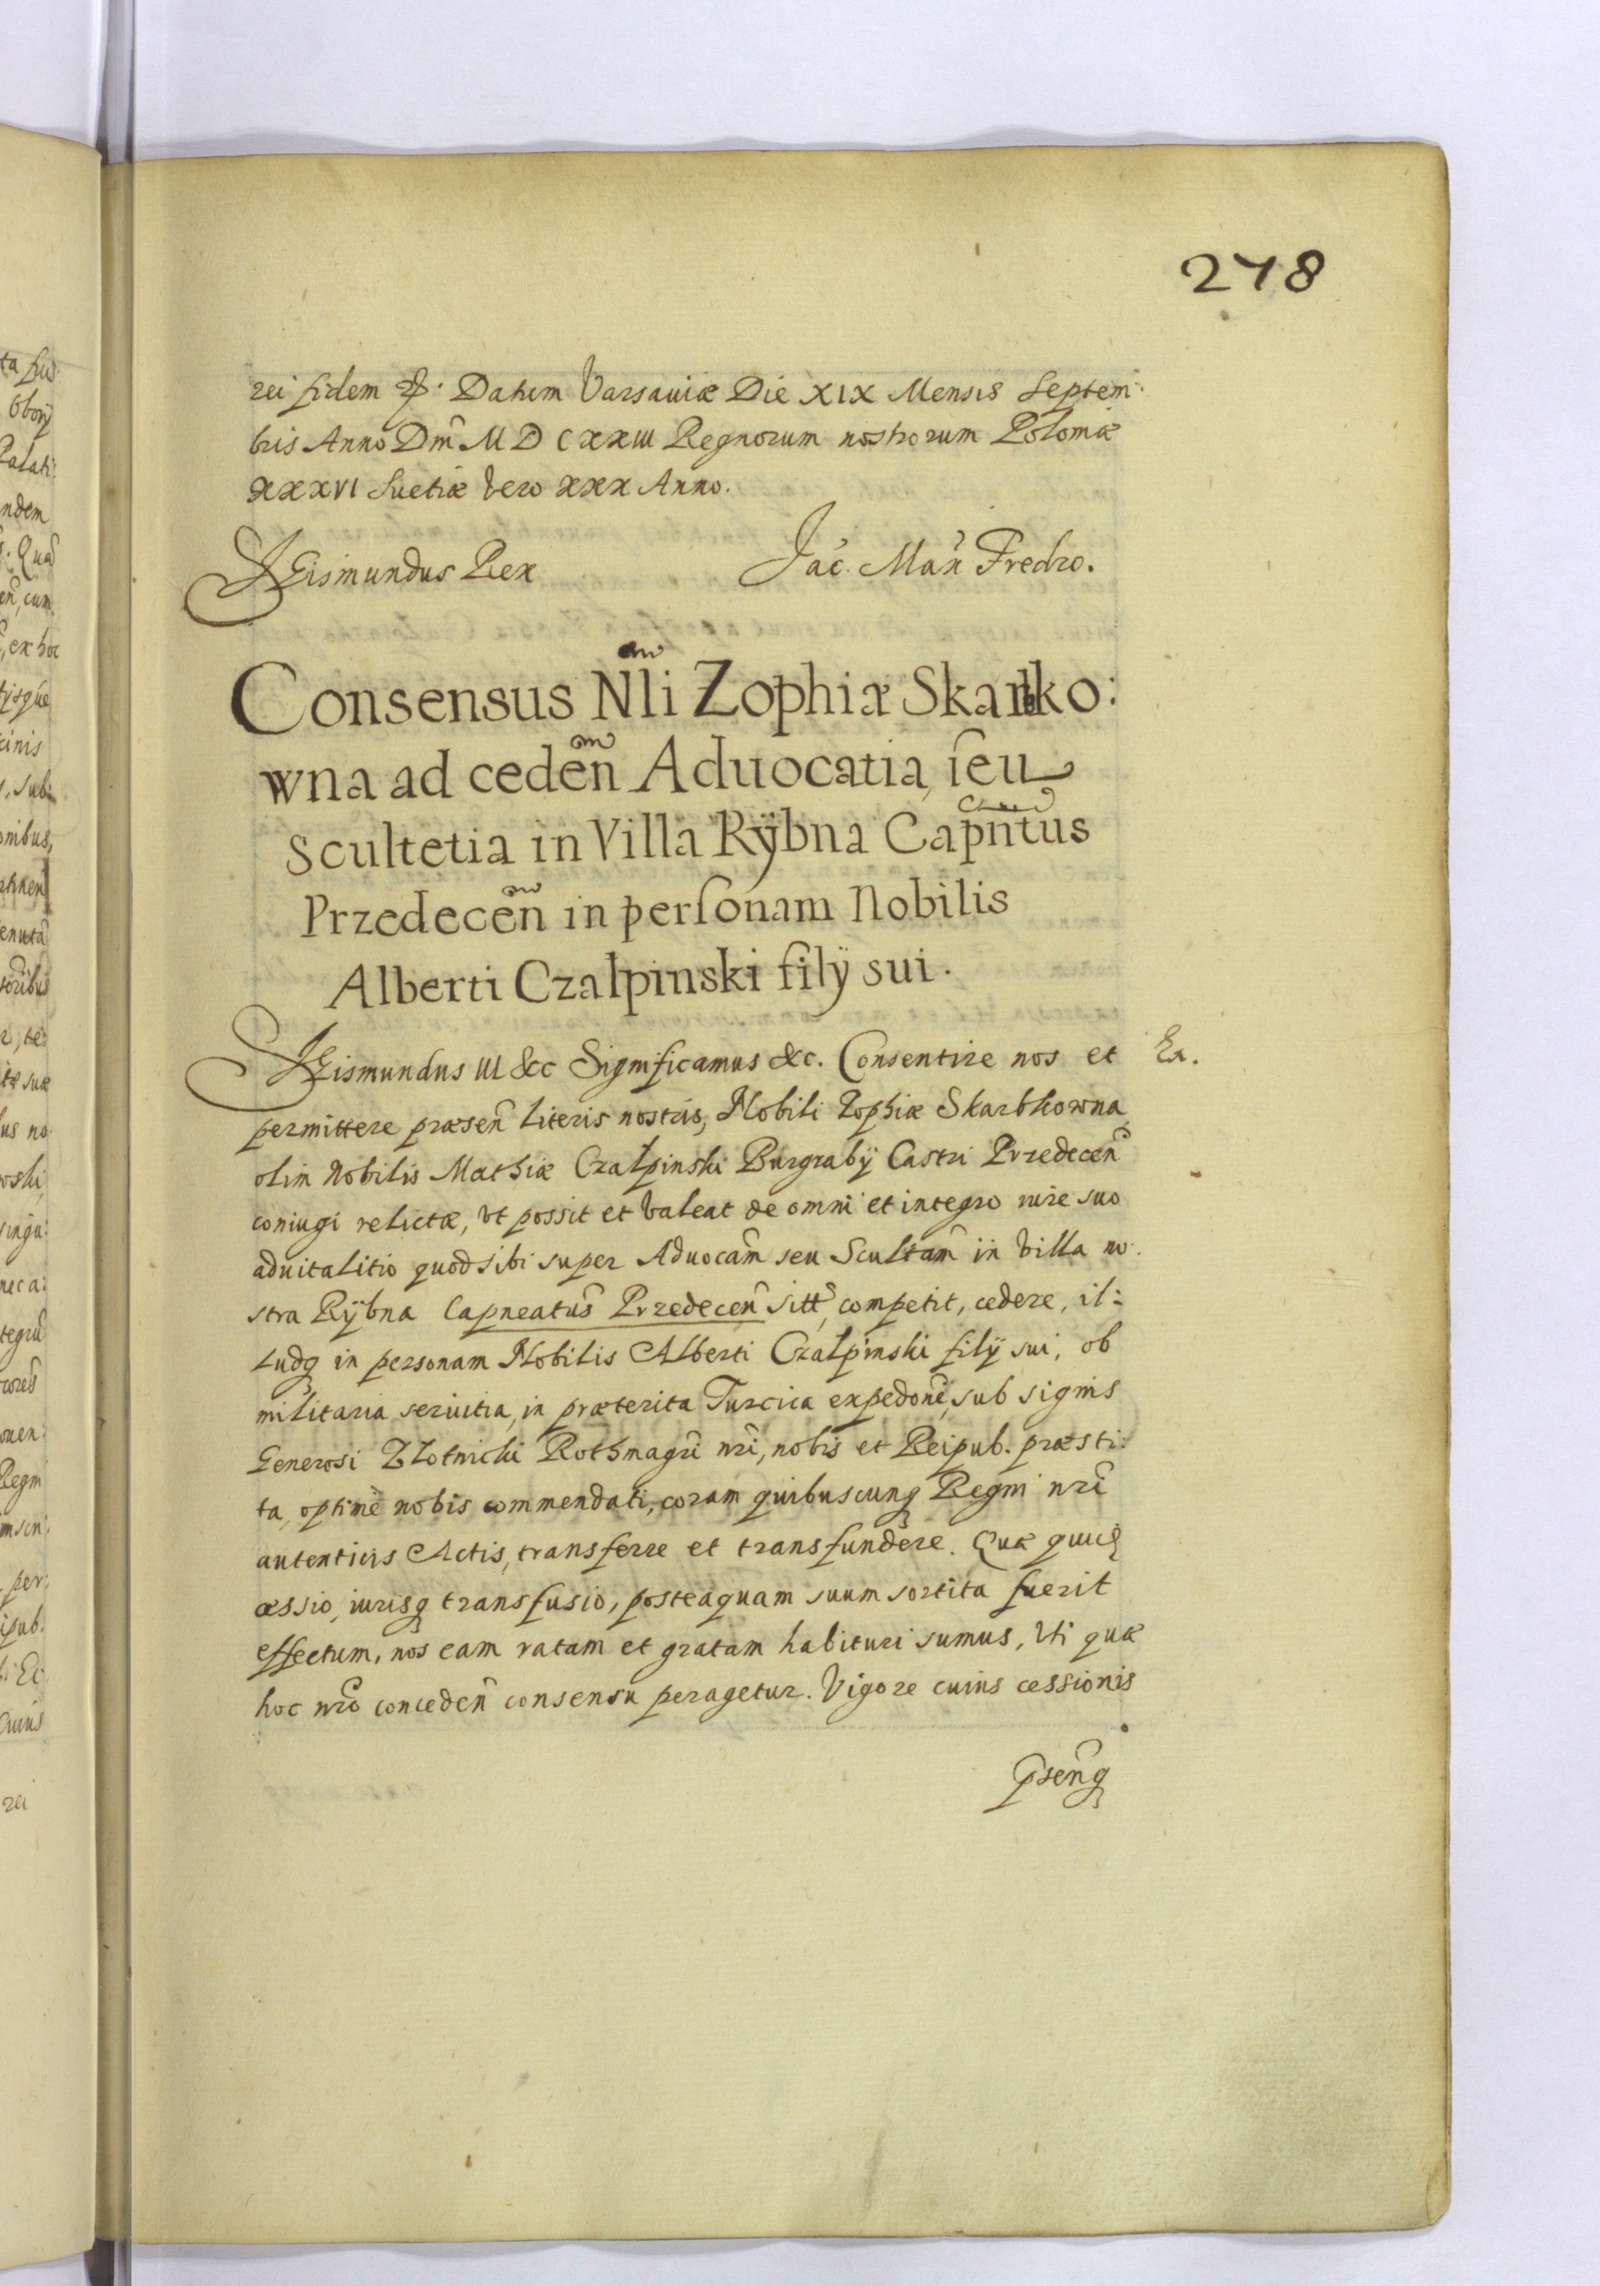 278
rei fidem &. Datum Varsaviæ Die XIX Mensis Septem:
bris Anno Dm̃ MDCXXIII Regnorum nostrorum Poloniæ
XXXVI Suetiæ vero XXX Anno.
Sigismundus Rex Jac. Max Fredro.
Consensus Nl̃i Zophiæ Skarbko:
wna ad ceden̄ Aduocatia, seu
Scultetia in Villa Rÿbna Capn̄tus
Przedecen̄ in personam Nobilis
Alberti Czalpinski filÿ sui.
Sigismundus III &c Significamus &c. Consentire nos et
Ex.
permittere præsen̄ literis nostris, Nobili Zophiæ Skarbkowna
olim Nobilis Mathiæ Czalpinski Burgrabÿ Castri Przedecen̄
coniugi relictæ, vt possit et valeat de omni et integro iure suo
aduitalitio quod sibi super Aduocãm seu Scultãm in villa no:
stra Rÿbna Capneatus̃ Przedecen̄ sitt̃, competit, cedere, il:
ludq in personam Nobilis Alberti Czalpinski filÿ sui, ob
militaria seruitia, in præterita Turcica expedonẽ, sub signis
Generosi Zlotnicki Rothmagri nr̃i, nobis et Reipub. præsti:
ta, optimè nobis commendati, coram quibuscunq Regni nr̃i
autenticis Actis, transferre et transfundere. Quæ quid̃
cessio, iurisq transfusio, posteaquam suum sortita fuerit
effectum, nos eam ratam et gratam habituri sumus, Vti quæ
hoc nr̃o conceden̄ consensu peragetur. Vigore cuius cessionis
p̃senq